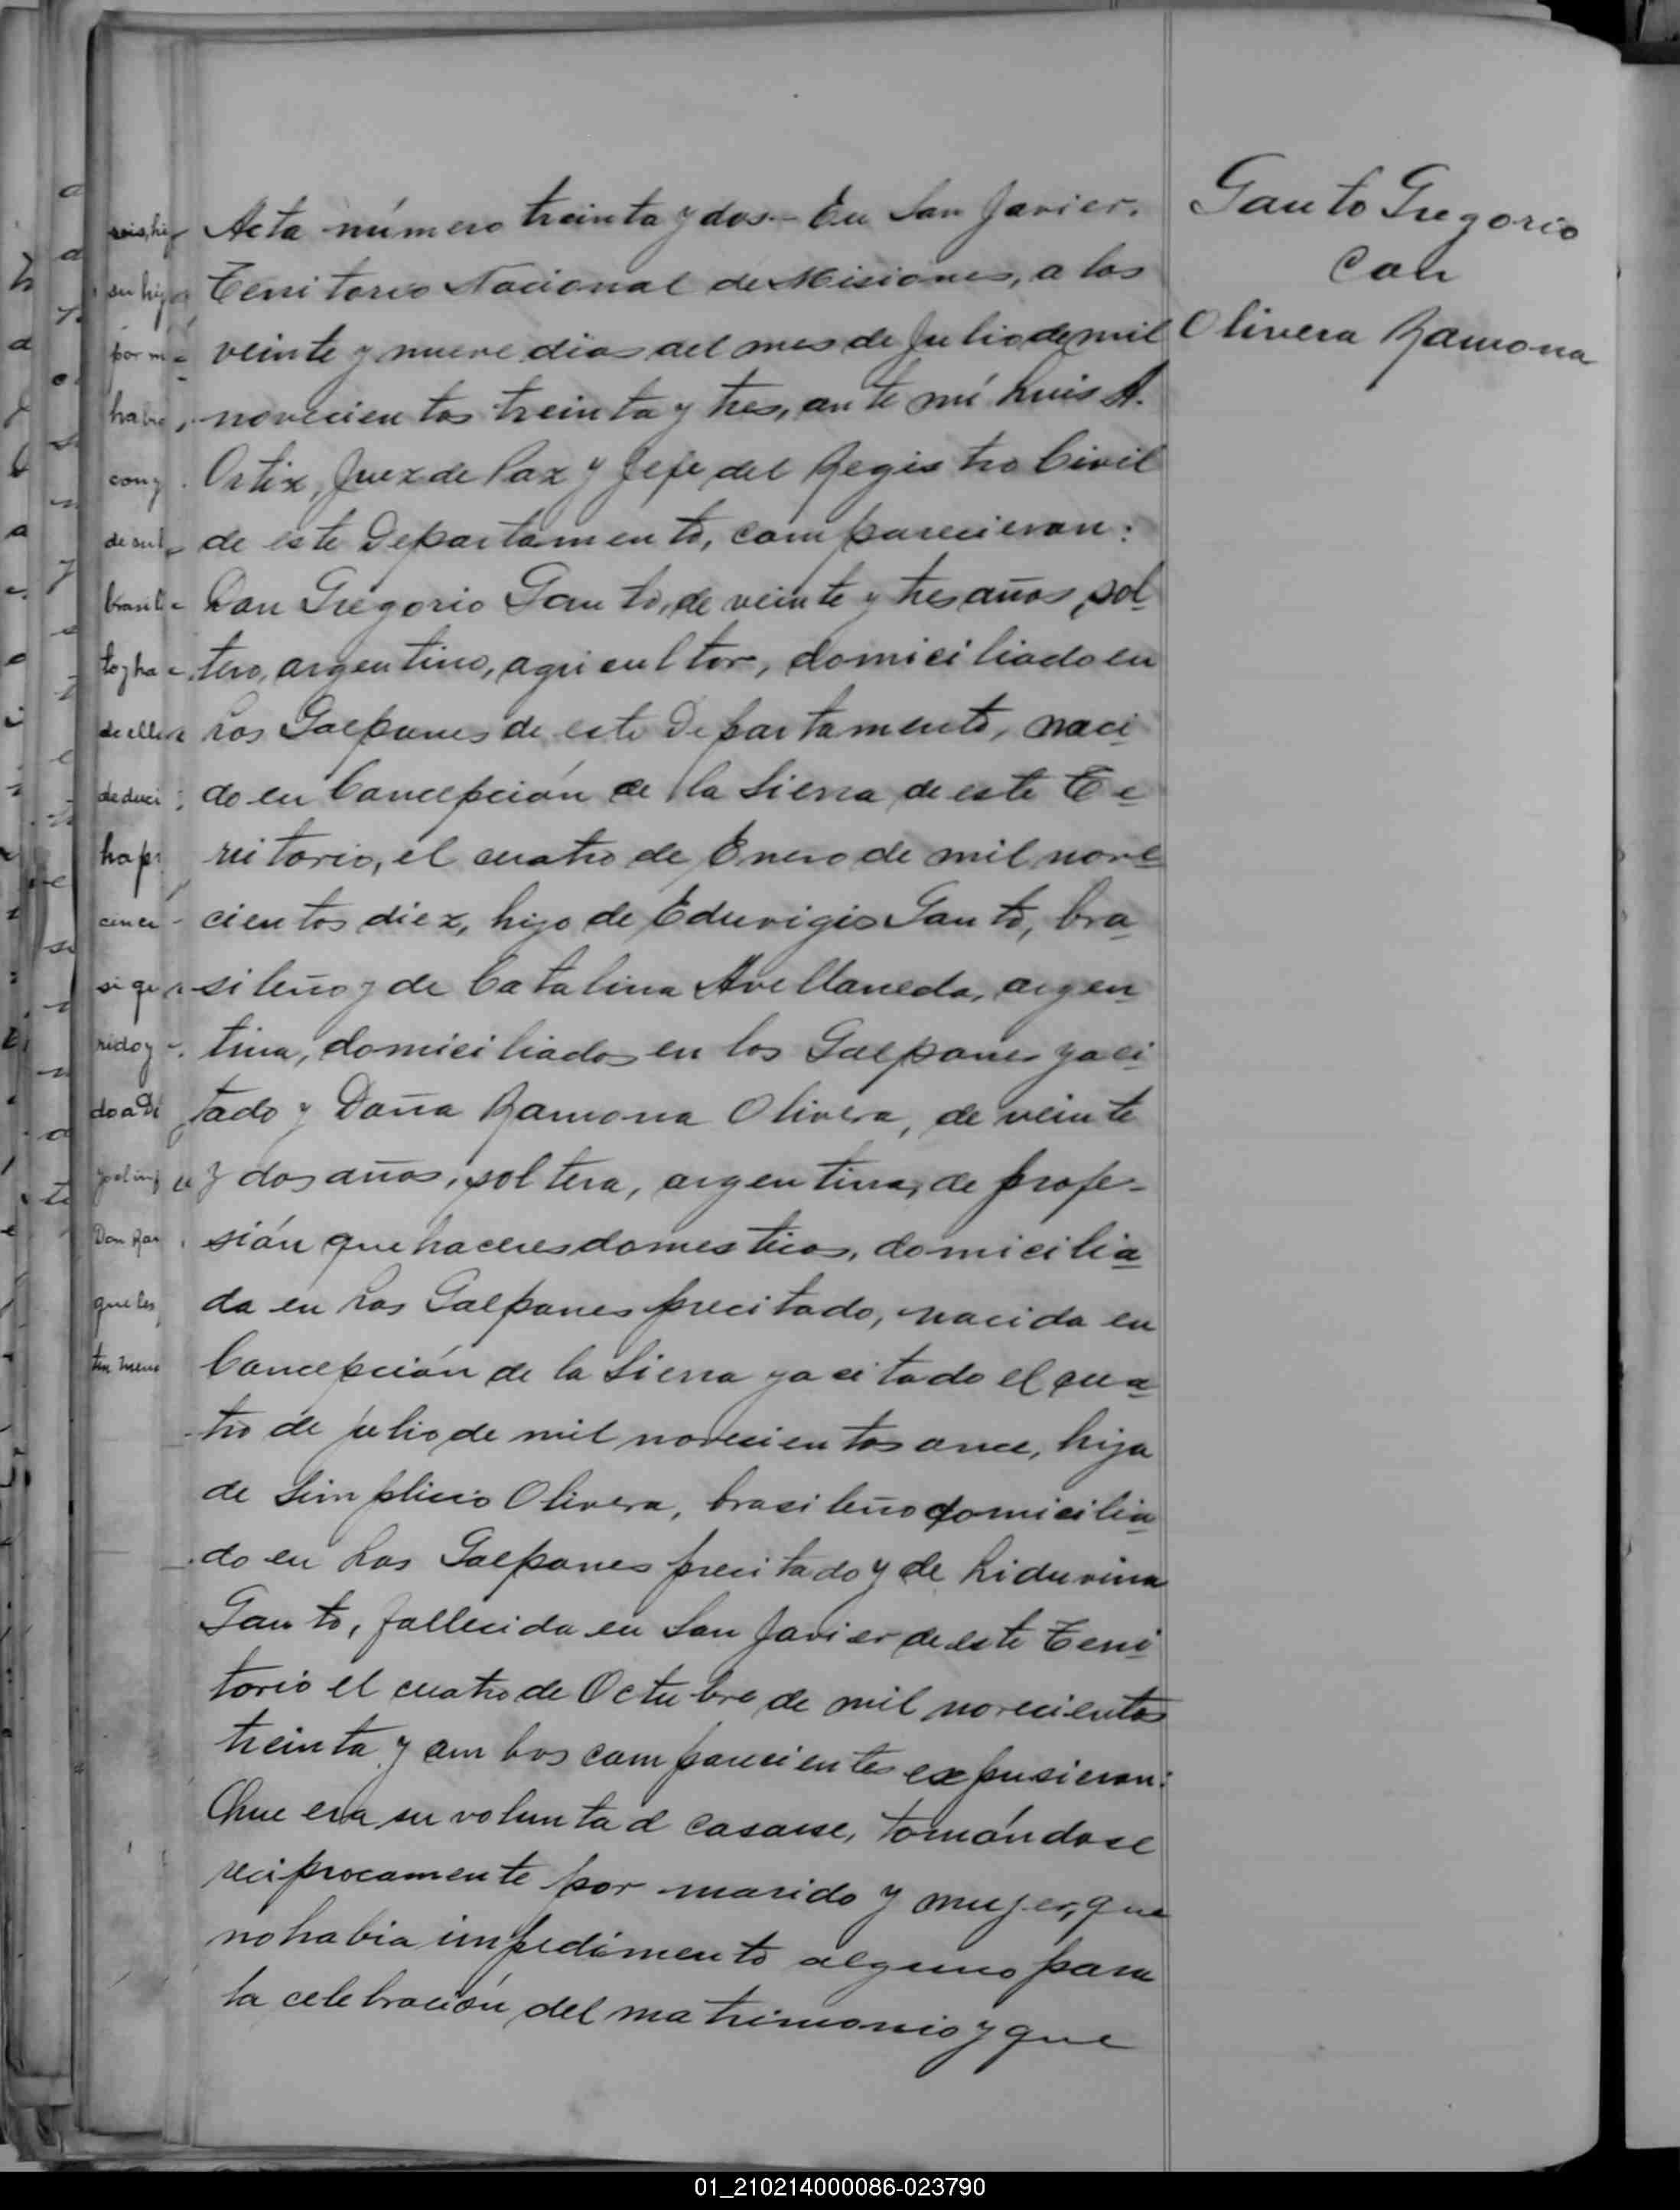 Acta número treinta y dos.- En San Javier.
Territorio Nacional de Misiones, a los
veinte y nueve dias del mes de Julio de mil
novecientos treinta y tres, ante mí Luis A.
Ortiz, Juez de Paz y Jefe del Registro Civil
de este Departamento, comparecieron:
Don Gregorio Gauto, de veinte y tres años, sol
tero, argentino, agricultor, domiciliado en
Los Galpones de este Departamento, naci
do en Concepción de la Sierra de este Te
rritorio, el cuatro de Enero de mil nove
cientos diez, hijo de Eduvigis Gauto, bra
sileño y de Catalina Avellaneda, argen
tina, domiciliados en los Galpones ya ci
tado y Doña Ramona Olivera, de veinte
y dos años, soltera, argentina, de profe-
sión quehaceres domesticos, domicilia
da en Los Galpones precitado, nacida en
Concepción de la Sierra ya citado el cua
tro de julio de mil novecientos once, hija
de Simplicio Olivera, brasileño domicilia
do en Los Galpones precitado y de Liduvina
Gauto, fallecida en San Javier de este Terri
torio el cuatro de Octubre de mil novecientos
treinta y ambos comparecientes expusieron:
Que era su voluntad casarse, tomándose
reciprocamente por marido y mujer, que
no habia impedimento alguno para
la celebración del matrimonio y que
Gauto Gregorio
Con
Olivera Ramona
01_210214000086-023790